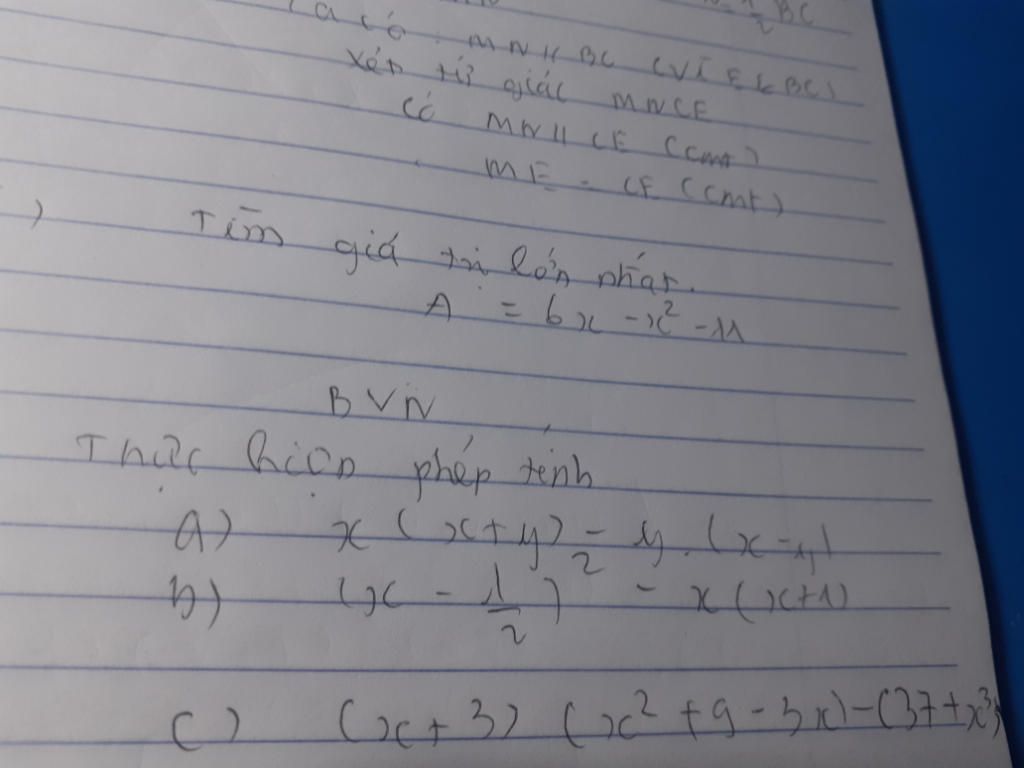 1/2 BC
Ta có : MN // BC (Vì E ∈ BC)
Xét tứ giác MNCE
Có MN // CE (cmt)
ME = CE (cmt)
) Tìm giá trị lớn nhất.
A = 6x - x² - 11
BVN
Thực hiện phép tính
a) x (x + y) - y . (x - y)
b) (x - 1/2)² - x (x + 1)
c) (x + 3) (x² + 9 - 3x) - (37 + x³)